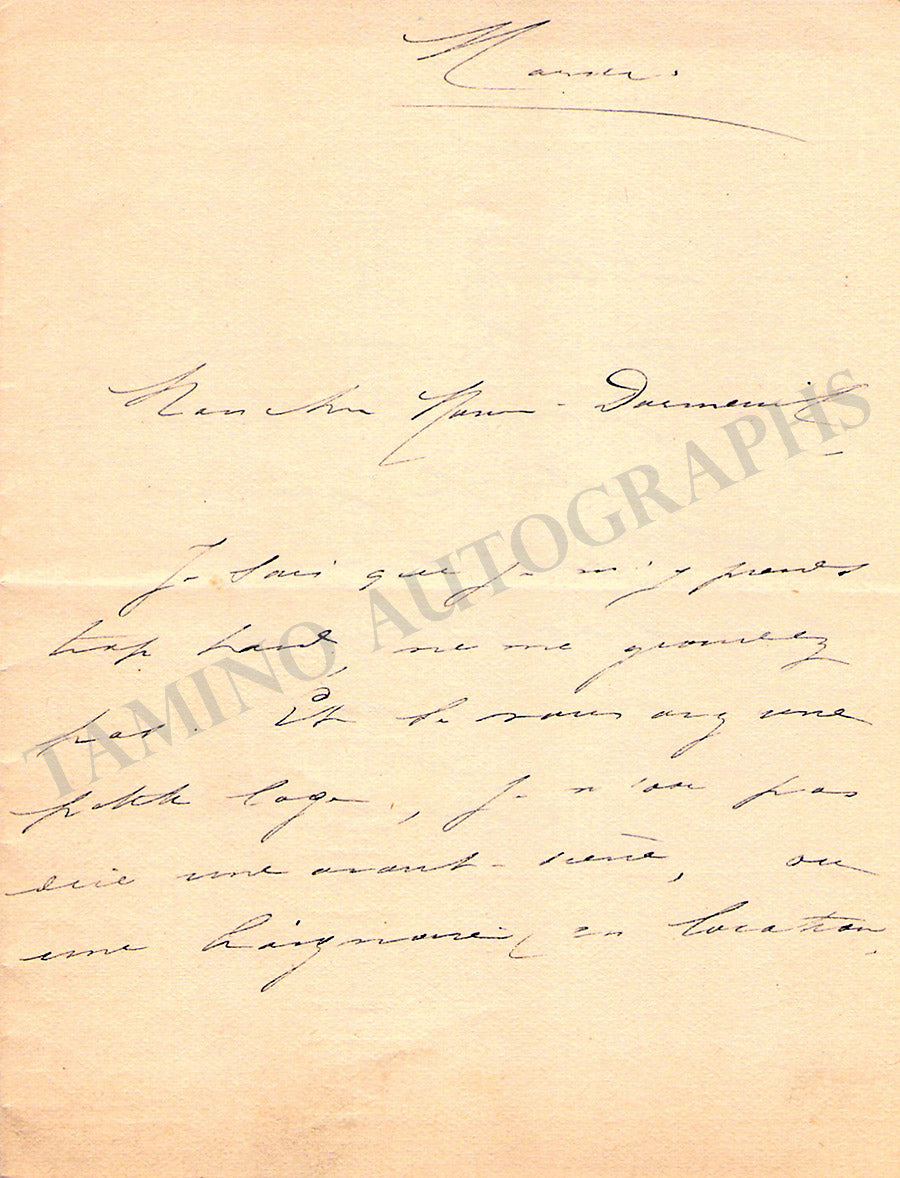 Mon cher Dormeuil
Je sais que je m'y prends
trop tard, ne me grondez
pas. Et si vous avez une
petite loge, je n'ose pas
dire une avant-scène, ou
une baignoire (en location
TAMINO AUTOGRAPHS